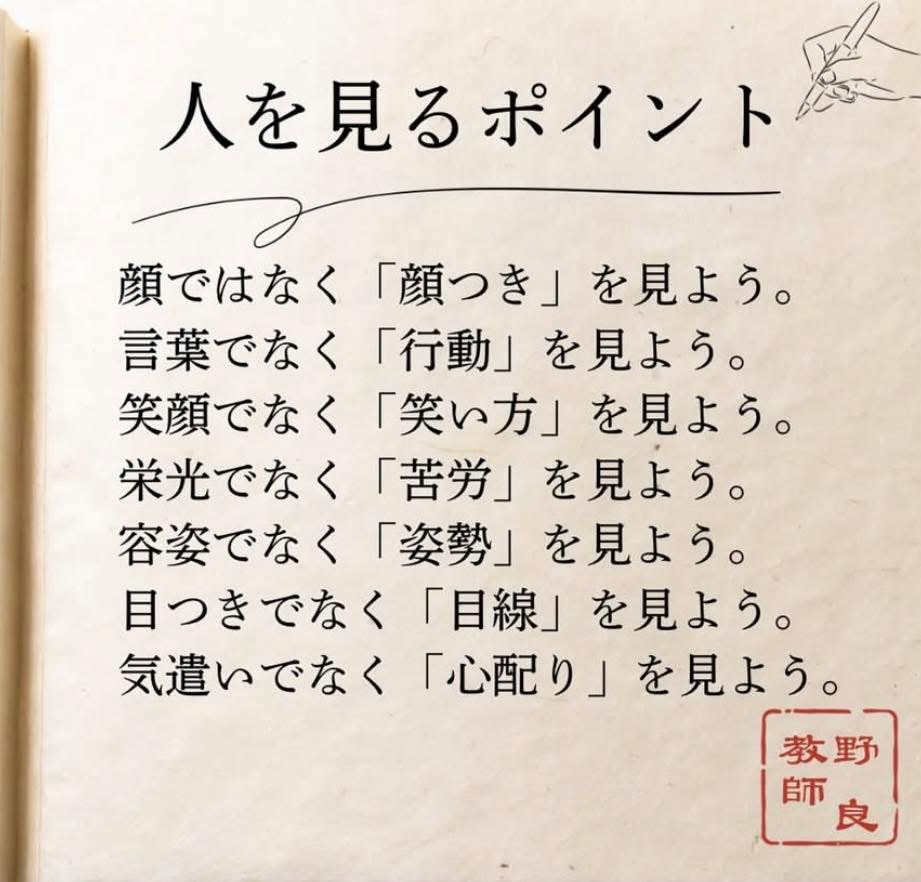 人を見るポイント
顔ではなく「顔つき」を見よう。
言葉でなく「行動」を見よう。
笑顔でなく「笑い方」を見よう。
栄光でなく「苦労」を見よう。
容姿でなく「姿勢」を見よう。
目つきでなく「目線」を見よう。
気遣いでなく「心配り」を見よう。
野良
教師